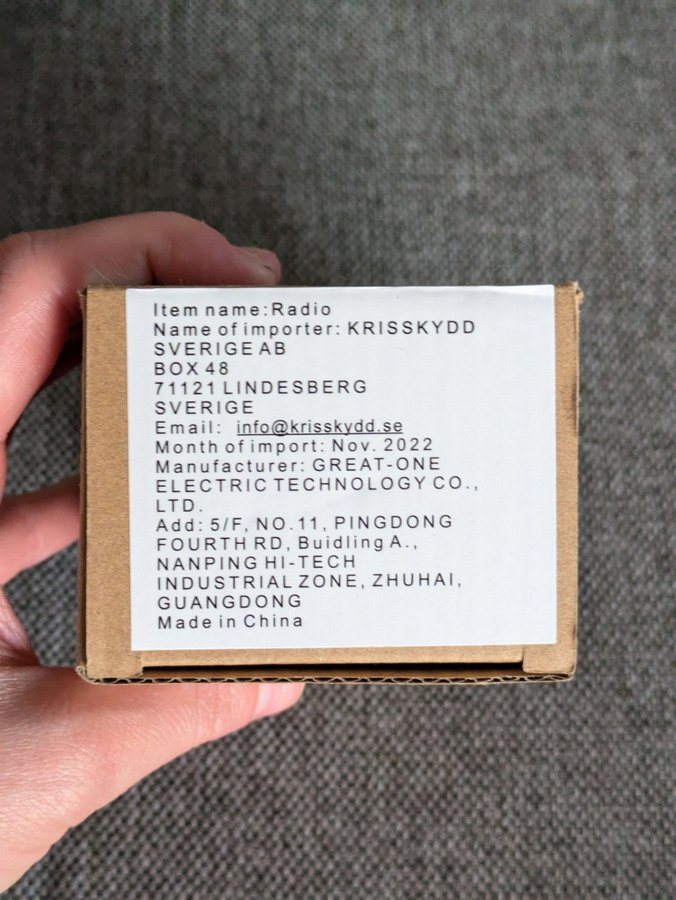 Item name:Radio
Name of importer: KRISSKYDD
SVERIGE AB
BOX 48
71121 LINDESBERG
SVERIGE
Email: info@krisskydd.se
Month of import: Nov. 2022
Manufacturer: GREAT-ONE
ELECTRIC TECHNOLOGY CO.,
LTD.
Add: 5/F, NO.11, PINGDONG
FOURTH RD, Buidling A.,
NANPING HI-TECH
INDUSTRIAL ZONE, ZHUHAI,
GUANGDONG
Made in China